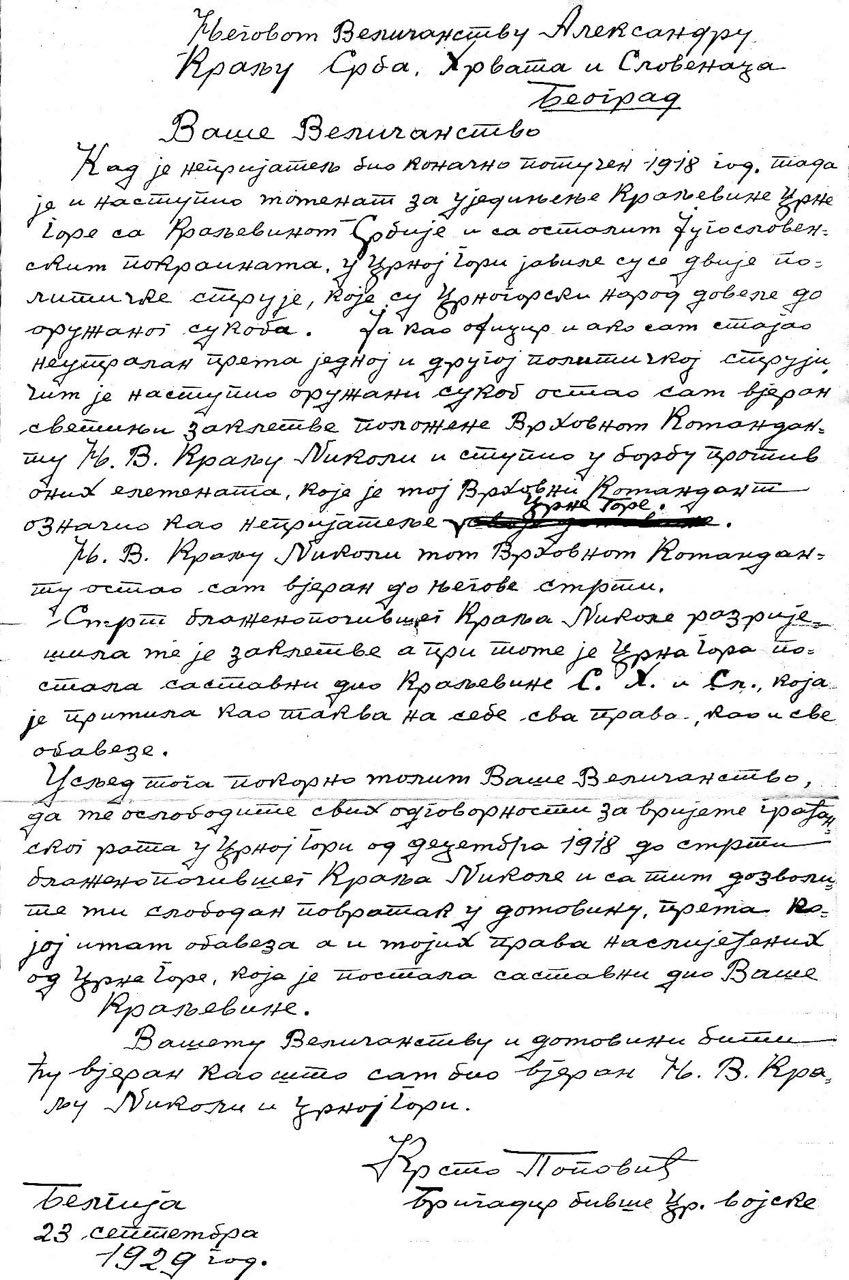 Његовом Величанству Александру
Краљу Срба, Хрвата и Словенаца
Београд
Ваше Величанство
Кад је непријатељ био коначно потучен 1918 год. тада
је и наступио моменат за уједињење Краљевине Црне
Горе са Краљевином Србије и са осталим Југословен-
ским покраинама, у Црној Гори јавиле су се двије по-
литичке струје, које су Црногорски народ довеле до
оружаног сукоба. Ја као официр и ако сам стајао
неутралан према једној и другој политичкој струји,
чим је наступио оружани сукоб остао сам вјеран
светињи заклетве положене Врховном Командан-
ту Њ. В. Краљу Николи и ступио у борбу против
оних елемената, које је мој Врховни Командант
означио као непријатеље Црне Горе.
Њ. В. Краљу Николи мом Врховном Командан-
ту остао сам вјеран до његове смрти.
Смрт блаженопочившег Краља Николе разрије-
шила ме је заклетве а при томе је Црна Гора по-
стала саставни дио Краљевине С. Х. и Сл., која
је примила као таква на себе сва права, као и све
обавезе.
Усљед тога покорно молим Ваше Величанство,
да ме ослободите свих одговорности за вријеме грађан-
ског рата у Црној Гори од децембра 1918 до смрти
блаженопочившег Краља Николе и са тим дозволи-
те ми слободан повратак у домовину, према ко-
јој имам обавеза а и мојих права наслијеђених
од Црне Горе, која је постала саставни дио Ваше
Краљевине.
Вашему Величанству и домовини бити
ћу вјеран као што сам био вјеран Њ. В. Кра-
љу Николи и Црној Гори.
Крсто Поповић
Бригадир бивше Цр. војске
Белгија
23 септембра
1929 год.